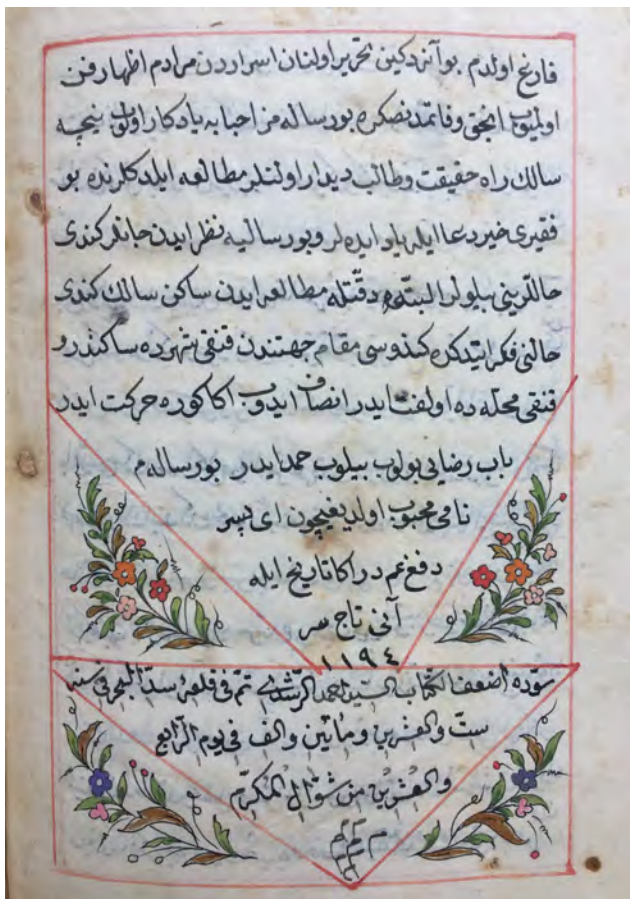 فارغ اولدم بو آنه دكين تحرير اولنان اسراردن مرادم اظهار فن
اولميوب انجق وفاتمدنصكره بورساله مز احبابه يادكار اولوب نيچه
سالك راه حقيقت وطالب ديدار اولنلر مطالعه ايلدكلرنده بو
فقيرى خير دعا ايله ياد ايده لر وبورساليه نظر ايدن جانلر كندى
حاللرينى بيلورلر البته دقتله مطالعه ايدن ساكن سالك كندى
حالنى فكر ايتدكده كندوسى مقام جهتندن قنقى شهرده ساكندر و
قنقى محله ده اولفت ايدر انصاف ايدوب اكا كوره حركت ايدر
باب رضايى بولوب بيلوب حمد ايدر بورساله م
نامى محبوب اولديغيچون اى پسر
دفع غم در اكا تاريخ ايله
آنى تاج سر
١١٩٤
سوّده اضعف الكتاب السيد احمد الرشدى تم فى قلعة سدّ البحر فى سنه
ستّ والعشرين ومأتين والف فى يوم الرّابع
والعشرين من شوّال المكرّم
م م م